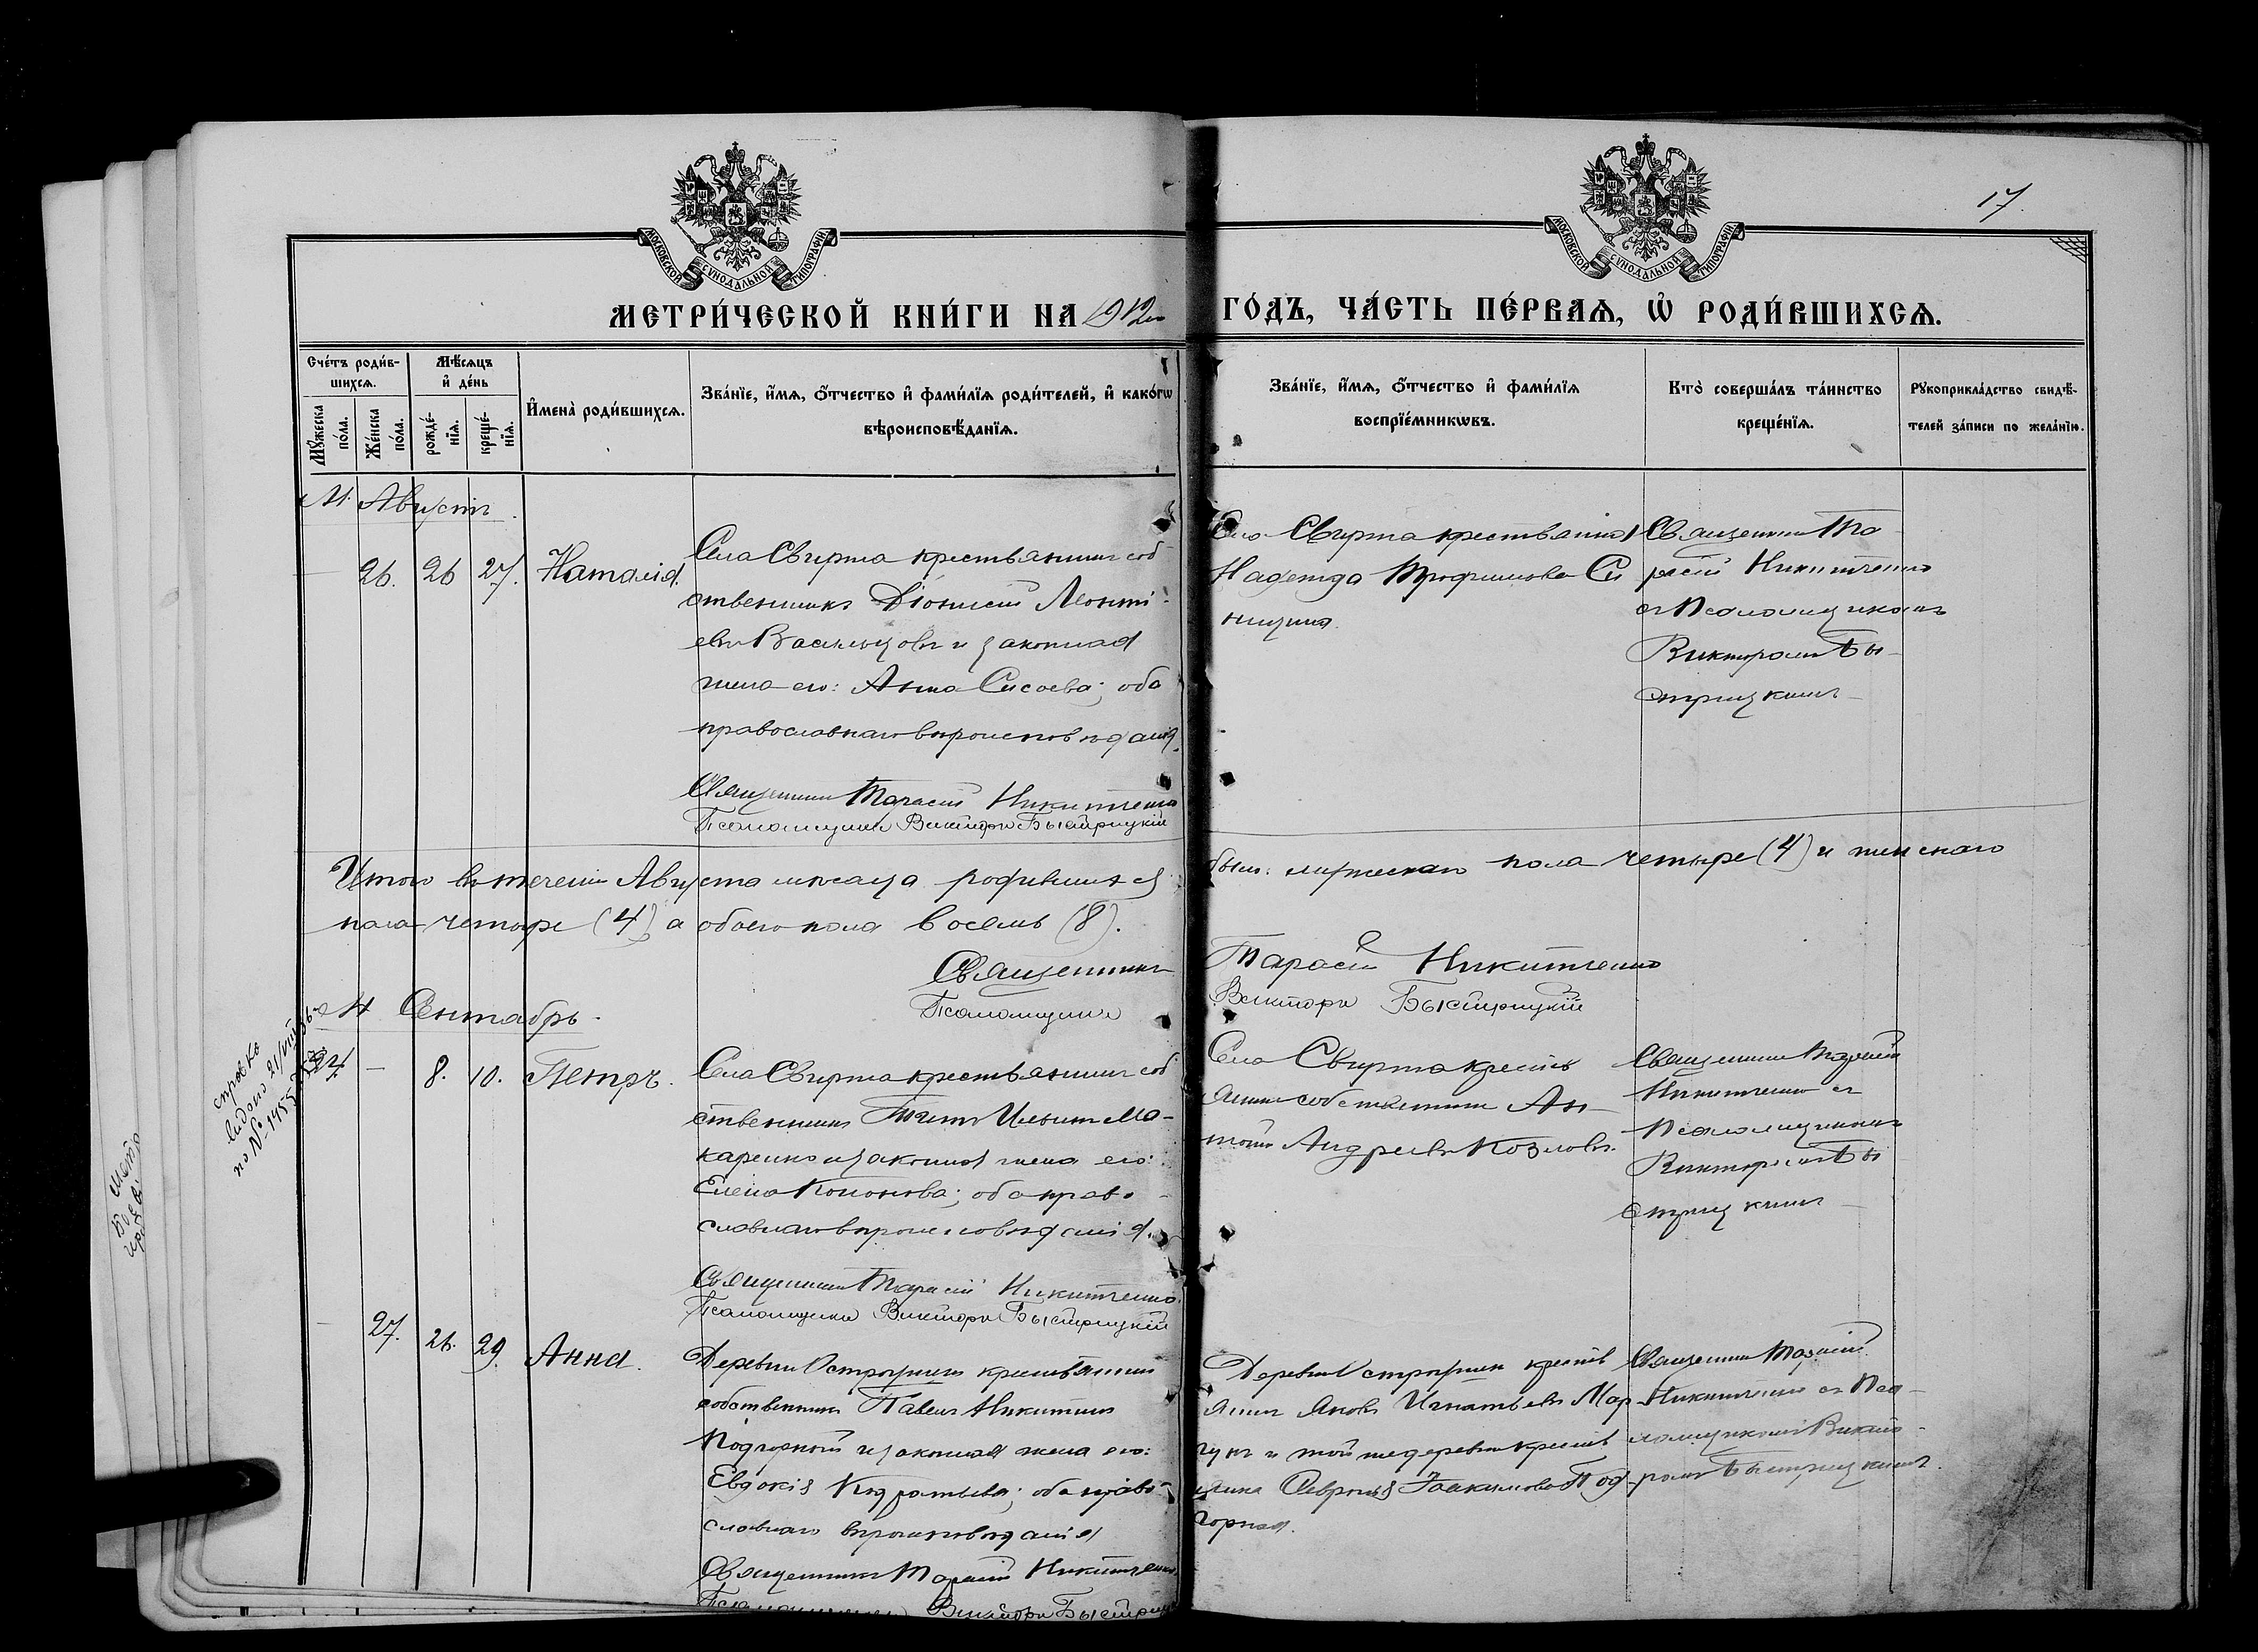 17.
МОСКОВСКОЙ СУНОДАЛЬНОЙ ТИПОГРАФІИ
МОСКОВСКОЙ СУНОДАЛЬНОЙ ТИПОГРАФІИ
МЕТРИ́ЧЕСКОЙ КНИ́ГИ НА 1912 ГО́ДЪ, ЧА́СТЬ ПЕ́РВАѦ, Ѡ҆ РОДИ́ВШИХСѦ.
Сче́тъ роди́в-
шихсѧ.
Мꙋ́жеска
по́ла.
Же́нска
по́ла.
Мѣ́сѧцъ
и҆ де́нь
рожде́-
нїѧ.
креще́-
нїѧ.
И҆мена̀ роди́вшихсѧ.
Зва́нїе, и҆́мѧ, ѻ҆́тчество и҆ фами́лїѧ роди́телей, и҆ како́гѡ
вѣроисповѣ́данїѧ.
Зва́нїе, и҆́мѧ, ѻ҆́тчество и҆ фами́лїѧ
воспрїе́мникѡвъ.
Кто̀ соверша́лъ та́инство
креще́нїѧ.
Рꙋкоприкла́дство свидѣ́-
телей за́писи по жела́нїю.
М. Августъ.
26. 26 27. Наталія.
Села Свирта крестьянинъ соб-
ственникъ Діонисій Леонті-
евъ Васильцовъ и законная
жена его: Анна Сисоева; оба
православнаго вѣроисповѣданія.
Священникъ Тарасій Никитченко
Псаломщикъ Викторъ Быстрицкій
Села Свирта крестьянка
Надежда Трофимова Си
Священникъ Та-
расій Никитченко
съ Псаломщикомъ
Викторомъ Бы-
стрицкимъ
Итого въ теченіи Августа мѣсяца родившихся было: мужескаго пола четыре (4) и женскаго
пола четыре (4), а обоего пола восемь (8).
Священникъ Тарасій Никитченко
Псаломщикъ Викторъ Быстрицкій
М Сентябрь.
справка
видано 21/VIII
по № 1455
24. — 8. 10. Петръ.
Села Свирта крестьянинъ соб
ственникъ Титъ Ильинъ Ма-
каренко и законная жена его:
Елена Кононова; оба право-
славнаго вѣроисповѣданія.
Священникъ Тарасій Никитченко
Псаломщикъ Викторъ Быстрицкій
Села Свирта кресть
янинъ собственникъ Ан-
тоній Андреевъ Козловъ.
Священникъ Тарасій
Никитченко съ
Псаломщикомъ
Викторомъ Бы
стрицкимъ
27. 26. 29. Анна.
Деревни крестьянинъ
собственникъ Павелъ Никитинъ
Подгорный и законная жена его:
Евдокія Кодратьева; оба право-
славнаго вѣроисповѣданія
Священникъ Тарасій Никитченко
Псаломщикъ Викторъ Быстрицкій
Деревни кресть
янинъ Яковъ Игнатьевъ Мар-
чукъ и той же деревни кресть
янка Февронія Іоакимова Под-
горная.
Священникъ Тарасій
Никитченко съ Пса-
ломщикомъ Викто-
ромъ Быстрицкимъ.